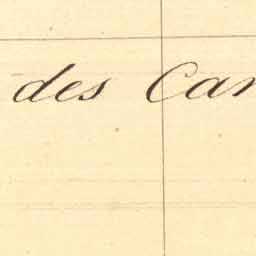 des Can